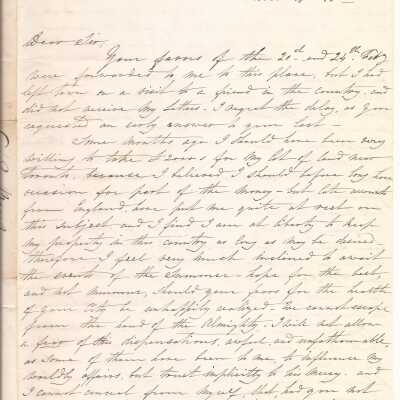 Dear Sir,
Your favors of the 20th and 24th Feby
were forwarded to me to this place, but I had
left town on a visit to a friend in the country, and
did not receive my letters. I regret the delay, as you
requested an early answer to your last
Some months ago I should have been very
willing to take for my lot of land near
Toronto, because I believed I should before long have
occasion for part of the money - but late accounts
from England, have put me quite at rest on
this subject and I find I am at liberty to keep
my property in this country as long as may be desired.
Therefore I feel very much inclined to await
the events of the Summer - hope for the best,
and not murmur, should your fears for the health
of your city be unhappily realized - We cannot escape
from the hand of the Almighty. I will not allow
a fear of the dispensations, awful, and unfathomable,
as some of them have been to me, to influence my
worldly affairs, but trust implicitly to his mercy. and
I cannot conceal from myself, that, had you not